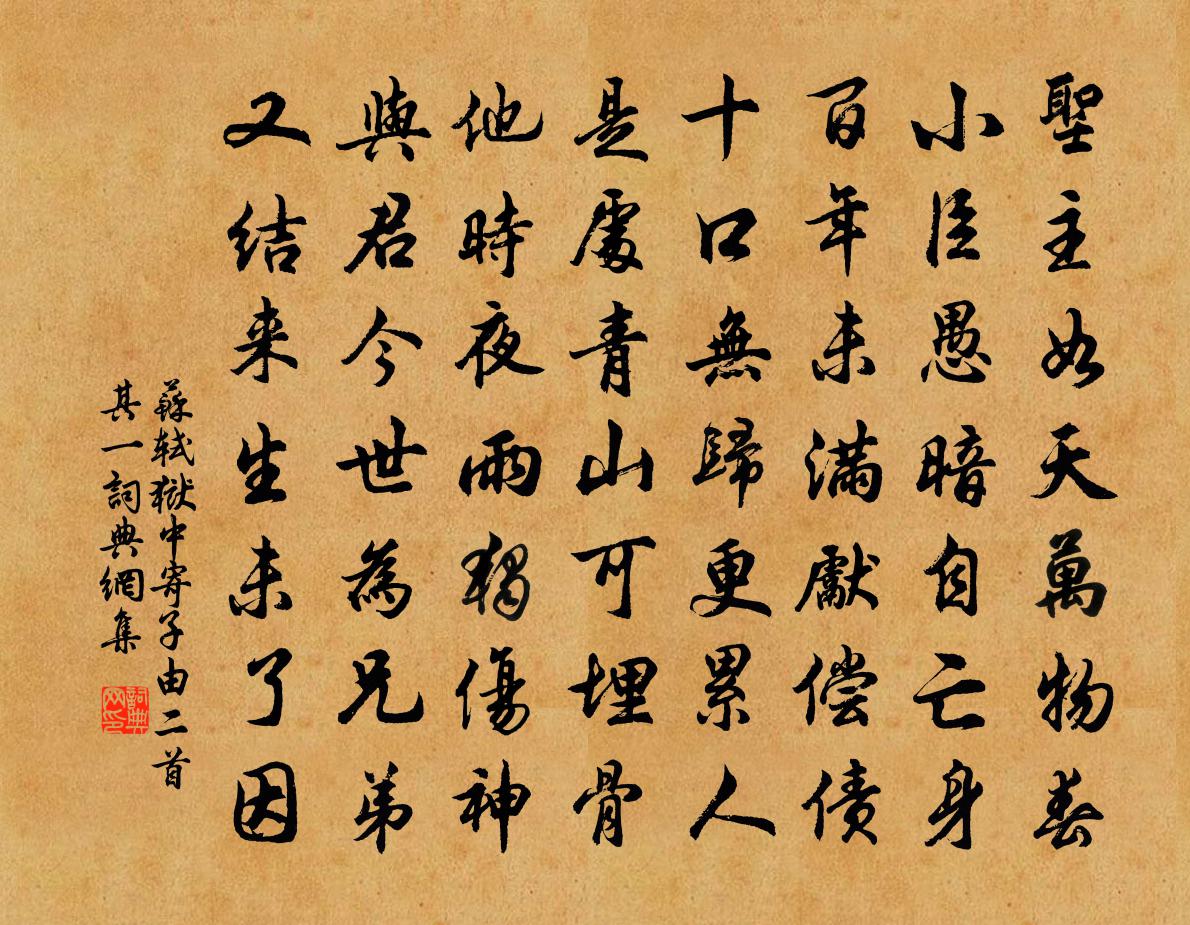 聖主如天萬物春
小臣愚暗自亡身
百年未滿獻偿债
十口無歸更累人
是處青山可埋骨
他時夜雨獨傷神
與君今世為兄弟
又结来生未了因
蘇軾獄中寄子由二首
其一詞典網集
詞典网印